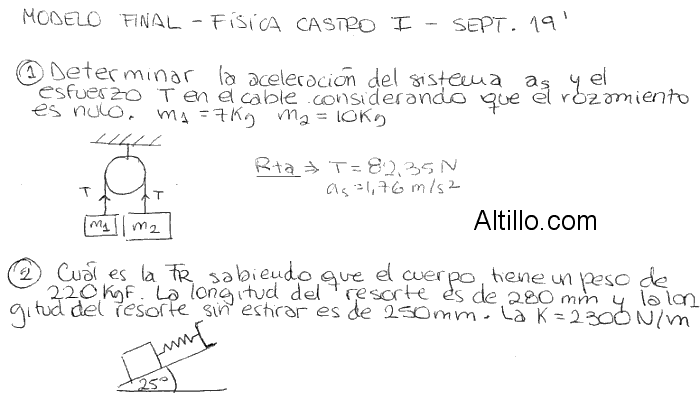 MODELO FINAL - FÍSICA CASTRO I - SEPT. 19'
① Determinar la aceleración del sistema as y el
esfuerzo T en el cable considerando que el rozamiento
es nulo. m1 = 7Kg m2 = 10Kg
Rta ⇒ T = 82,35 N
as = 1,76 m/s2
T T
m1 m2
Altillo.com
② Cuál es la FR sabiendo que el cuerpo tiene un peso de
220 KgF. La longitud del resorte es de 280 mm y la lon
gitud del resorte sin estirar es de 250mm. La K = 2300 N/m
25°